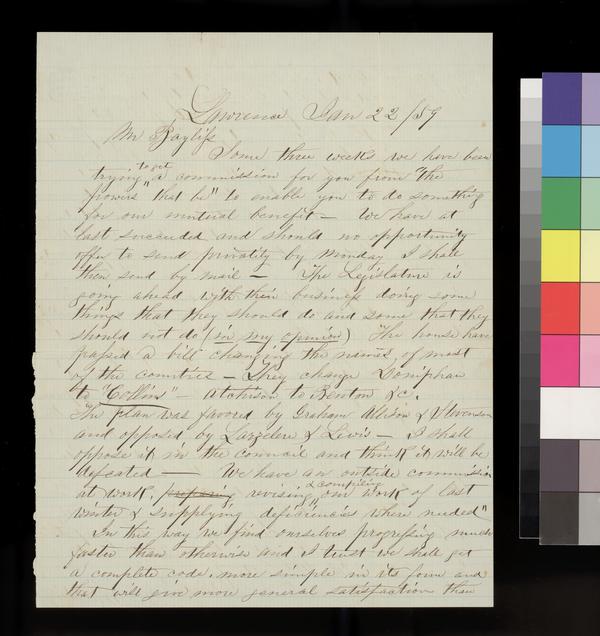 Lawrence Jan 22/59
Mr Bayliss
Some three weeks we have been
trying to get a commission for you from "the
powers that be" to enable you to do something
for our mutual benefit — We have at
last succeeded and should no opportunity
offer to send privately by Monday I shall
then send by mail — The Legislature is
going ahead with their business doing some
things that they should do and some that they
should not do (in my opinion) The house have
passed a bill changing the names of most
of the countries — They change Doniphan
to "Collins" — Atchison to Benton &c.
The plan was favored by Graham Wilson & Stevenson
and opposed by Larzelere & Lewis — I shall
oppose it in the council and think it will be
defeated — We have an outside commission
at work, preparing revising & compiling our work of last
winter & supplying deficiencies where needed"
In this way we find ourselves progressing much
faster than otherwise and I trust we shall get
a complete code, more simple in its form and
that will give more general satisfaction than